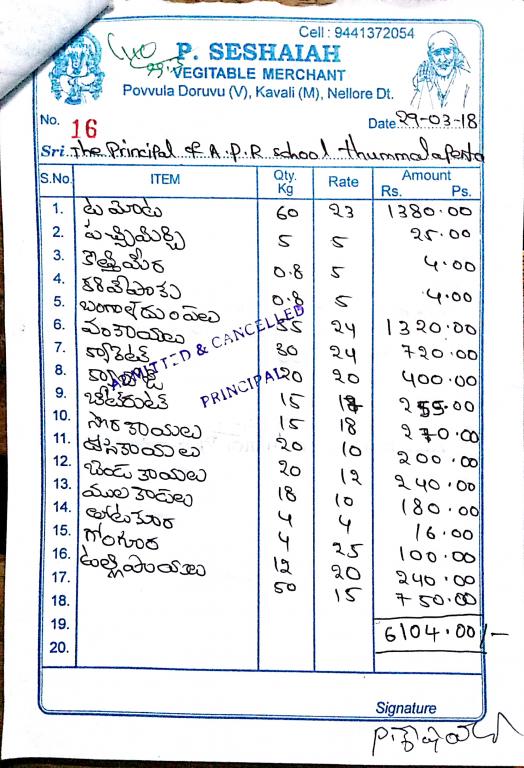 Cell : 9441372054
P. SESHAIAH
VEGITABLE MERCHANT
Povvula Doruvu (V), Kavali (M), Nellore Dt.
No. 16
Date 29-03-18
Sri. The Principal of A.P.R school thummalapenta
S.No. ITEM Qty. Kg Rate Amount Rs. Ps.
1. టమోటు 60 23 1380.00
2. పచ్చిమిర్చి 5 5 25.00
3. కొత్తిమీర 0.8 5 4.00
4. కరివేపాకు 0.8 5 4.00
5. బంగాళదుంపలు 55 24 1320.00
6. వంకాయలు 30 24 720.00
7. క్యారెట్ 20 20 400.00
8. 15 255.00
9. బీట్‌రూట్ 15 18 270.00
10. సొరకాయలు 20 10 200.00
11. 20 12 240.00
12. బెండకాయలు 18 10 180.00
13. ములకాడలు 4 4 16.00
14. తోటకూర 4 25 100.00
15. గోంగూర 12 20 240.00
16. ఉల్లిపాయలు 50 15 750.00
17.
18.
19. 6104.00/-
20.
ADMITTED & CANCELLED
PRINCIPAL
Signature